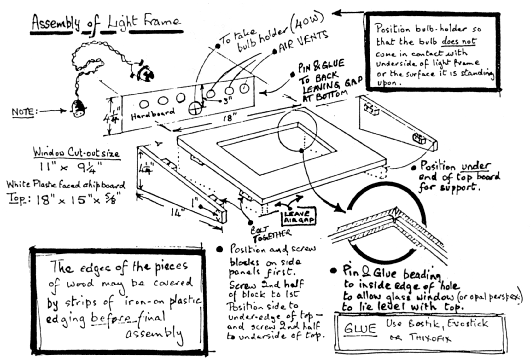 Assembly of Light Frame
To take
bulb holder (40W)
AIR VENTS
Position bulb-holder so
that the bulb does not
come in contact with
underside of light frame
or the surface it is standing
upon.
PIN & GLUE
TO BACK
LEAVING GAP
AT BOTTOM
NOTE:
4¼"
Hardboard
3"
18"
Window Cut-out size
11" x 9¼"
White Plastic faced chipboard
Top: 18" x 15" x 5/8"
4¼"
14"
1"
BOLT
TOGETHER
LEAVE
AIR GAP
Position under
end of top board
for support.
The edges of the pieces
of wood may be covered
by strips of iron-on plastic
edging before final
assembly
Position and screw
blocks on side
panels first.
Screw 2nd half
of block to 1st
Position side to
under-edge of top —
and screw 2nd half
to underside of top.
Pin & Glue beading
to inside edge of hole
to allow glass window (or opal perspex)
to lie level with top.
GLUE Use Bostik, Evostick
or THIXOFIX